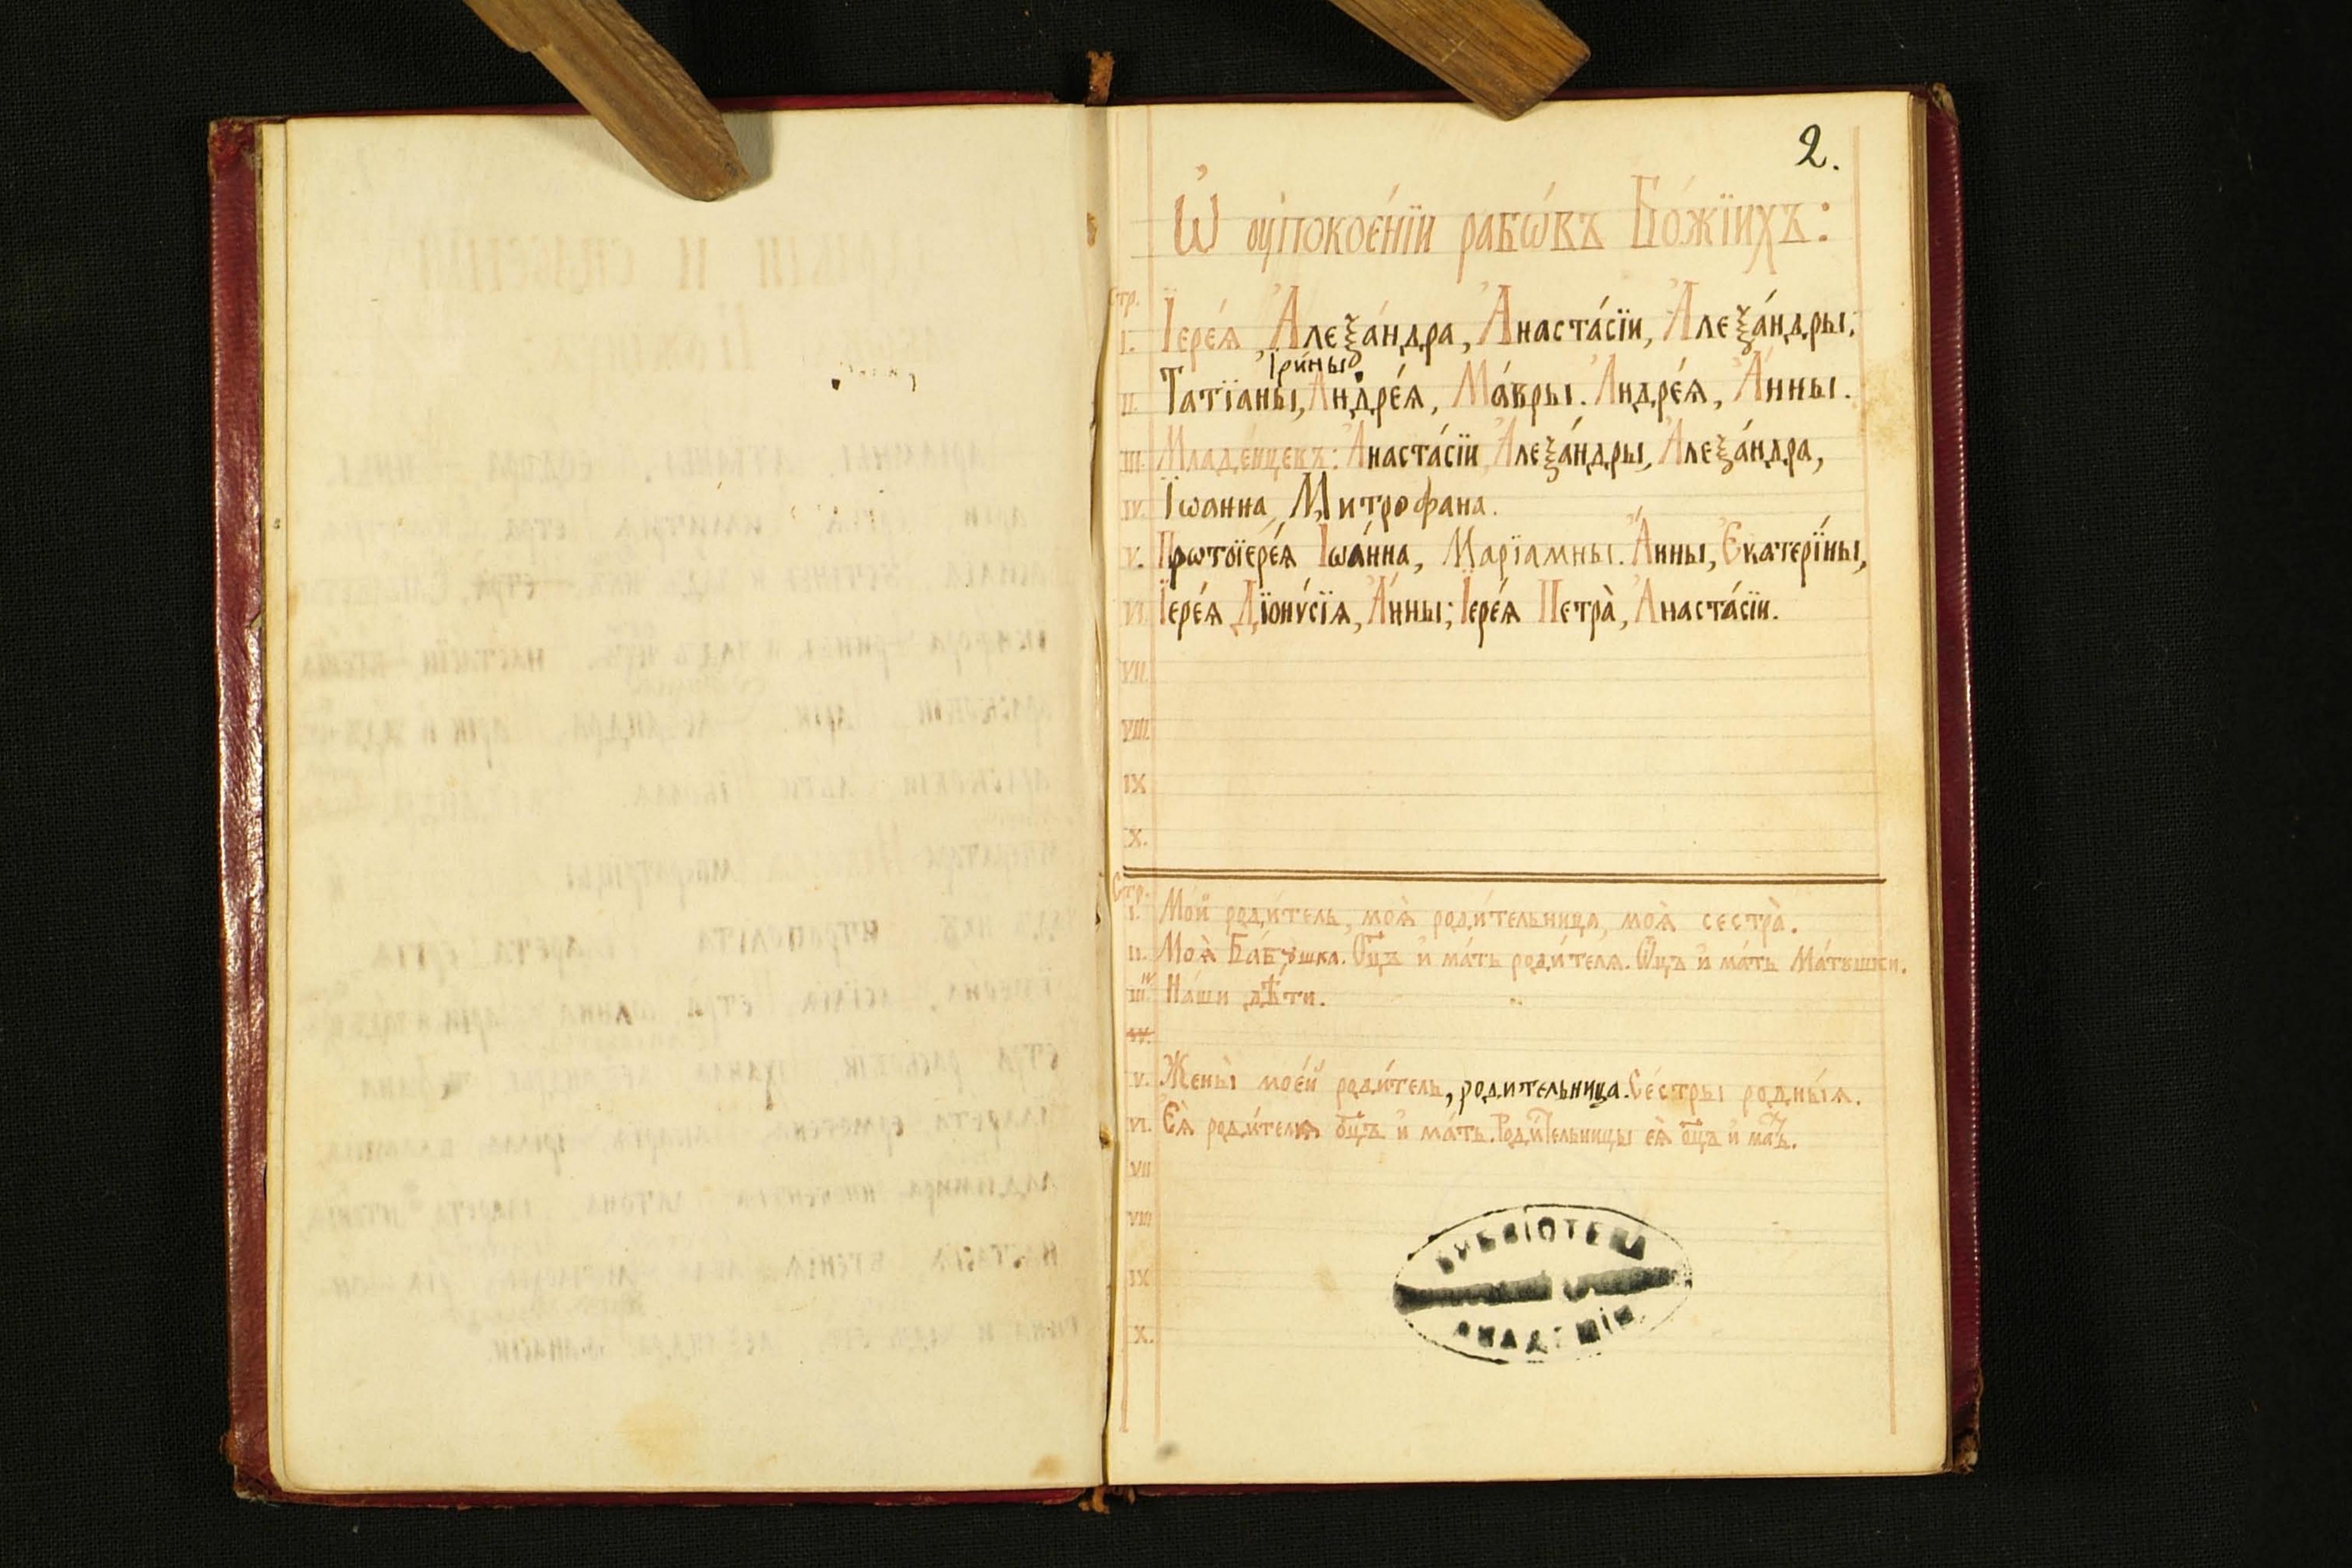 2.
Ѡ҆ оу҆покое́нїи рабѡ́въ Бо́жїихъ:
Стр.
I. Їере́ѧ А҆леѯа́ндра, А҆наста́сїи, А҆леѯа́ндры.
І҆ри́ны
II. Татїа́ны, А҆ндре́ѧ, Ма́вры. А҆ндре́ѧ, А҆́нны.
III. Младе́нцевъ: А҆наста́сїи, А҆леѯа́ндры, А҆леѯа́ндра,
IV. Їѡанна, Митрофана.
V. Прѡтоїере́ѧ Їѡа́нна, Марїамны. А҆́нны, Є҆катері́ны,
VI. Їере́ѧ Дїонѵ́сїѧ, А҆́нны; Їере́ѧ Петра̀, А҆наста́сїи.
VII.
VIII.
IX
X.
Стр.
I. Мо́й роди́тель, моѧ̀ роди́тельница, моѧ̀ сестра̀.
II. Моѧ̀ Ба́бушка. Ѻ҆ц҃ъ и҆ ма́ть роди́телѧ. Ѻ҆ц҃ъ и҆ ма́ть Ма́тушки.
III. IV На́ши дѣ́ти.
IV.
V. Жены̀ мое́й роди́тель, родительница. Се́стры родны́ѧ.
VI. Є҆ѧ̀ роди́телѧ ѻ҆ц҃ъ и҆ ма́ть. Роди́тельницы є҆ѧ̀ ѻ҆ц҃ъ и҆ ма́ть.
VII
VIII
IX
X.
БИБЛІОТЕКА
АКАДЕМІИ